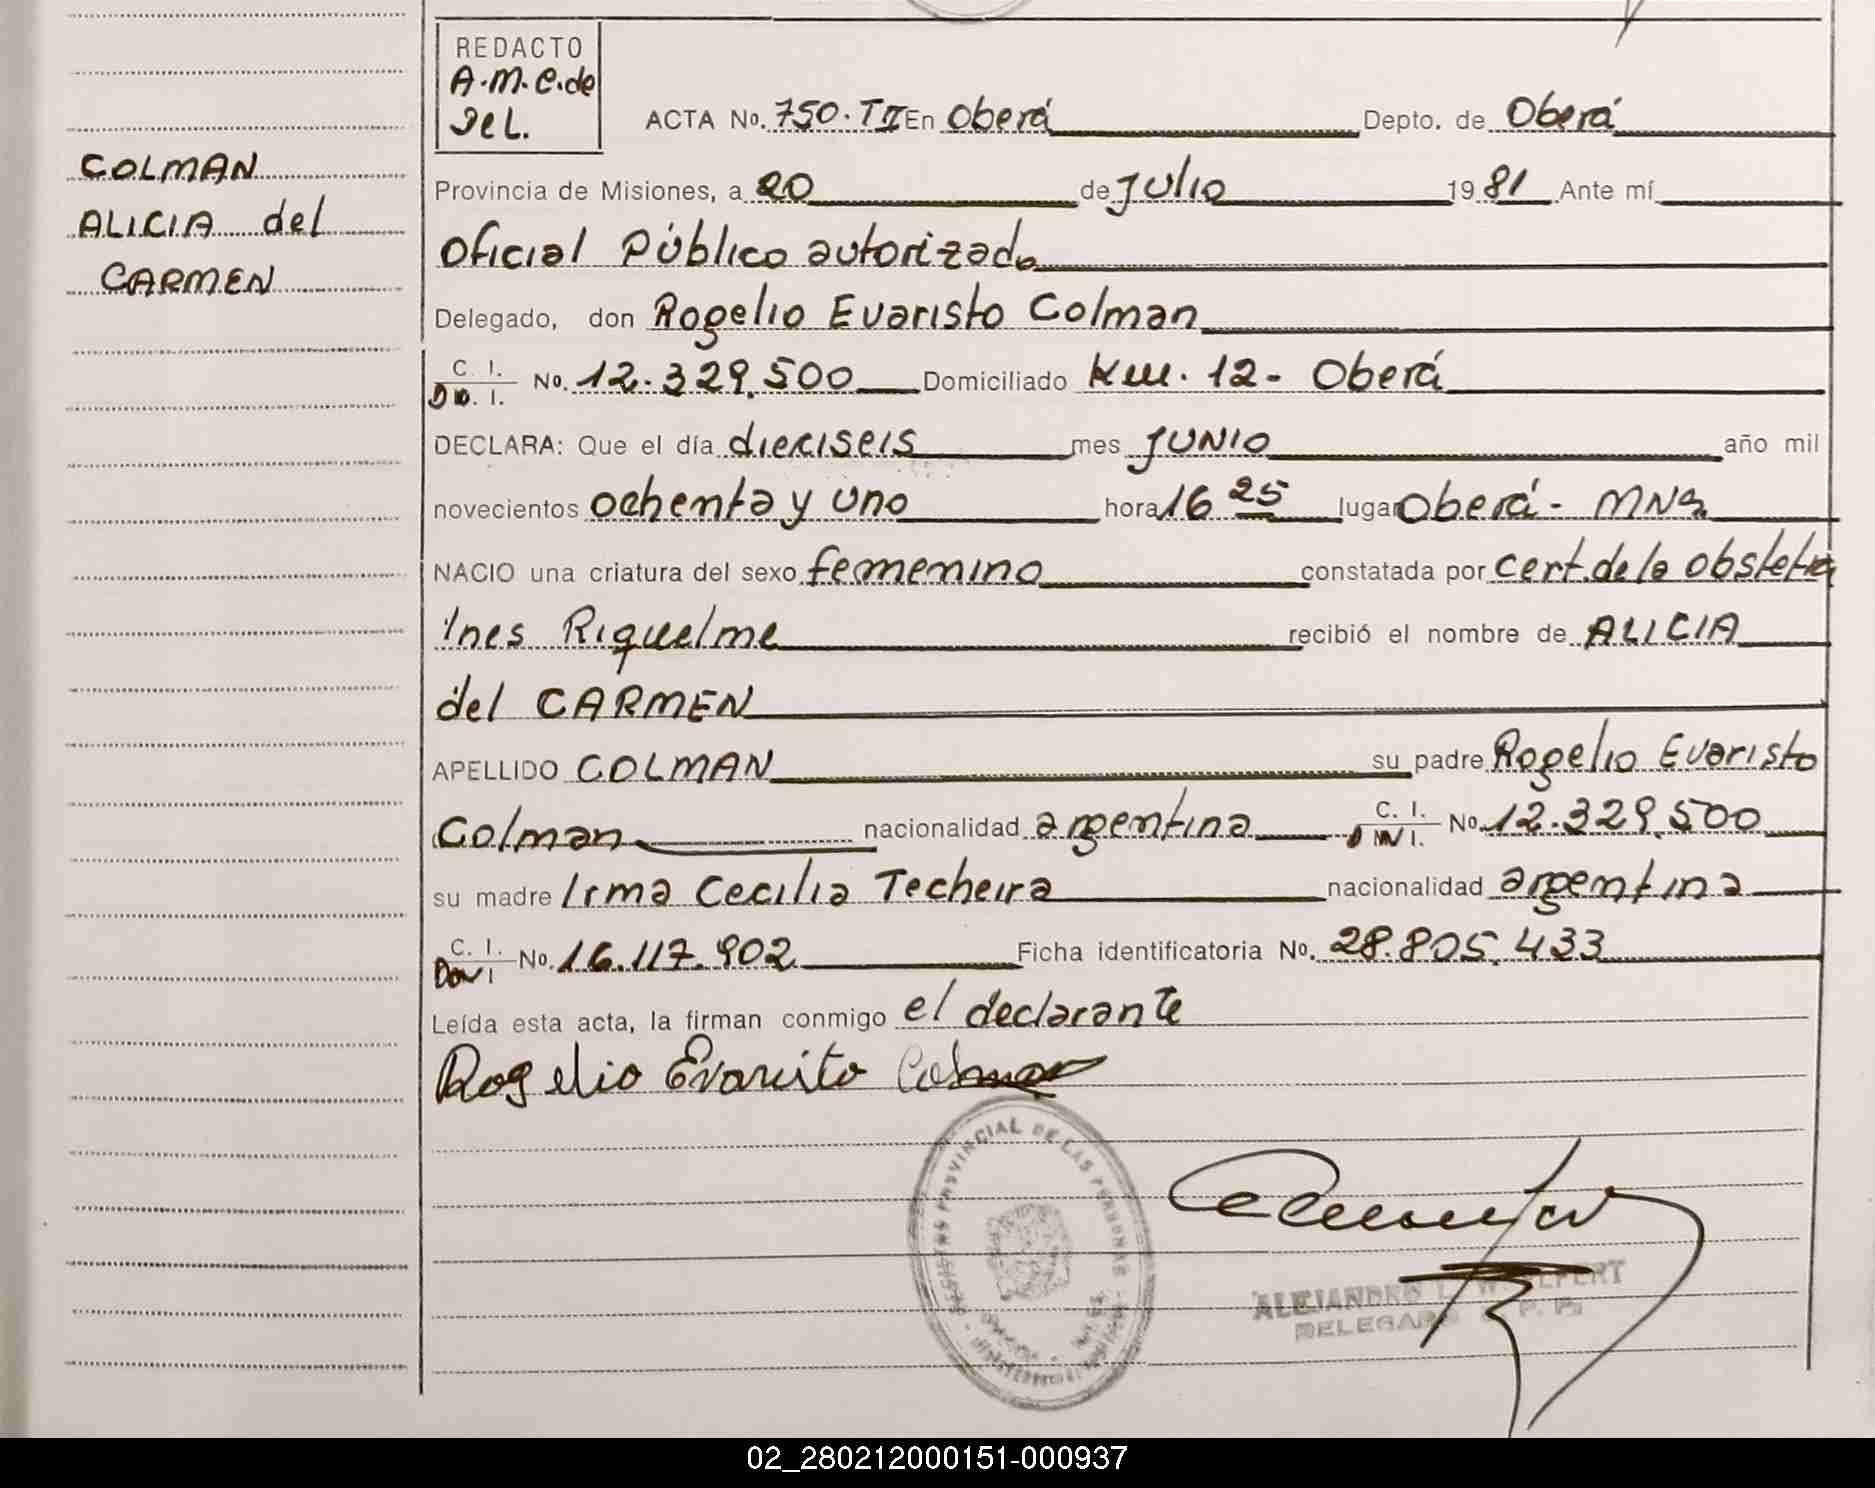 REDACTO
A.M.C.de
Del.
ACTA No. 750.TII En Oberá Depto. de Oberá
COLMAN
ALICIA del
CARMEN
Provincia de Misiones, a 20 de Julio 1981 Ante mí
Oficial Público autorizado
Delegado, don Rogelio Evaristo Colman
C. I.
D. I. No. 12.329.500 Domiciliado Km. 12- Oberá
DECLARA: Que el día dieciseis mes JUNIO año mil
novecientos ochenta y uno hora 16 25 lugar Oberá- MNS
NACIO una criatura del sexo femenino constatada por cert. de la obstetra
Ines Riquelme recibió el nombre de ALICIA
del CARMEN
APELLIDO COLMAN su padre Rogelio Evaristo
Colman nacionalidad argentina C. I. No. 12.329.500
su madre Irma Cecilia Techeira nacionalidad argentina
C. I. No. 16.117.902 Ficha identificatoria No. 28.805.433
Leída esta acta, la firman conmigo el declarante
Rogelio Evaristo Colman
REGISTRO PROVINCIAL DE LAS PERSONAS
ALEJANDRO
DELEGADO
02_280212000151-000937